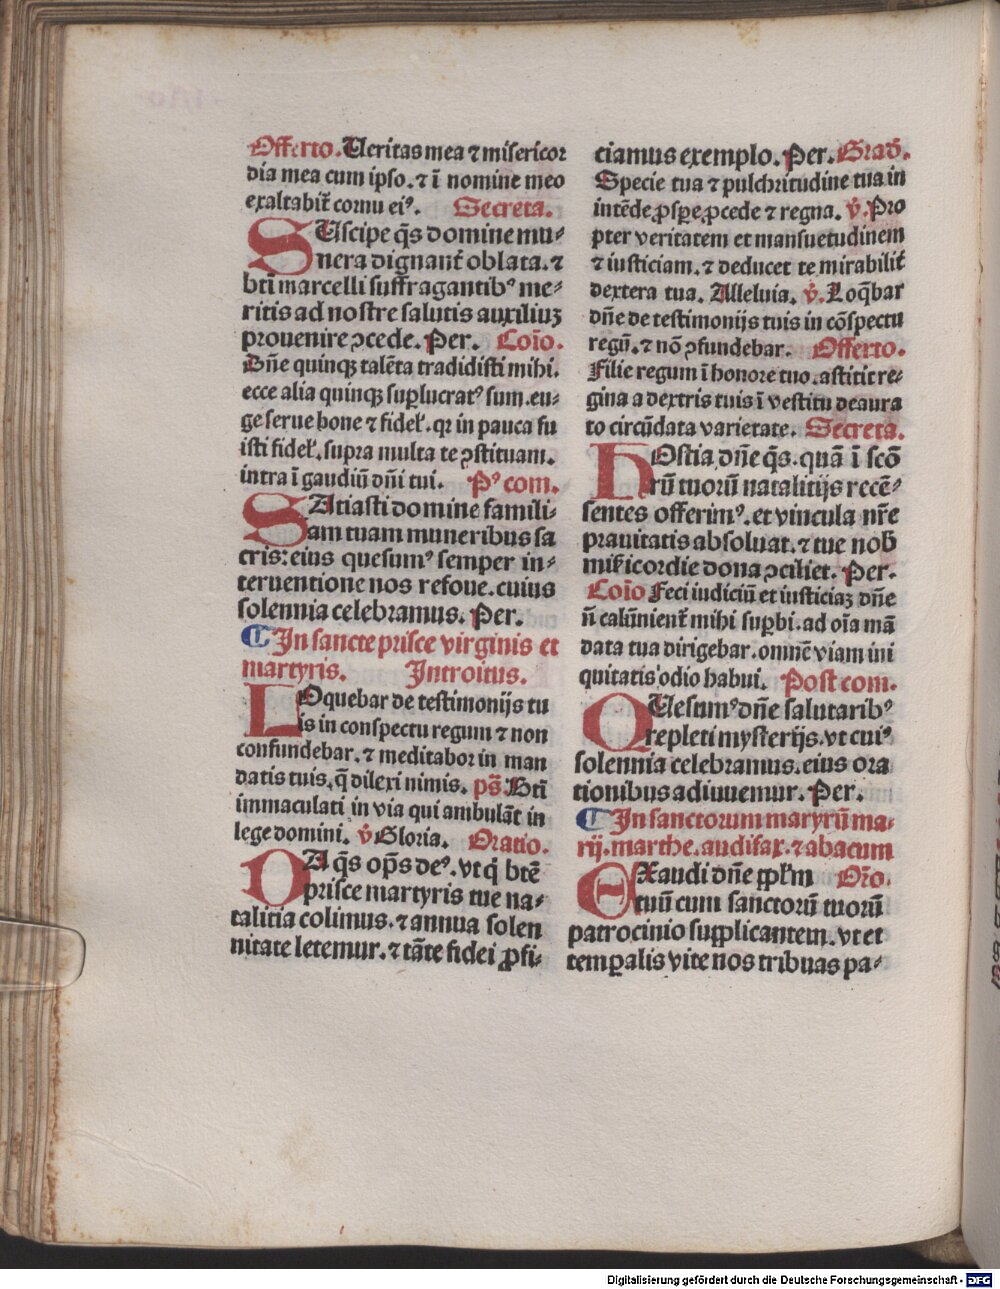 Offerto. Ueritas mea ⁊ misericor
dia mea cum ipso. ⁊ ī nomine meo
exaltabit̄ cornu ei⁹. Secreta.
SUscipe q̄s domine mu⸗
nera dignant̄ oblata. ⁊
bt̄i marcelli suffragantib⁹ me⸗
ritis ad nostre salutis auxiliuꝫ
prouenire ꝯcede. Per. Coīo.
Dn̄e quinqꝫ talēta tradidisti mihi.
ecce alia quinqꝫ suꝑlucrat⁹ sum. eu⸗
ge serue bone ⁊ fidel̛. qꝛ in pauca fu
isti fidel̛. supra multa te ꝯstituam.
intra ī gaudiū dn̄i tui. P⁹ com.
SAtiasti domine famili⸗
am tuam muneribus sa
cris: eius quesum⁹ semper in⸗
teruentione nos refoue. cuius
solennia celebramus. Per.
¶ In sancte prisce virginis et
martyris. Introitus.
LOquebar de testimonijs tu
is in conspectu regum ⁊ non
confundebar. ⁊ meditabor in man
datis tuis. q̄ dilexi nimis. ps̄ Bt̄i
immaculati in via qui ambulāt in
lege domini. v̄ Gloria. Oratio.
DA q̄s op̄s de⁹. vt q̇ btē
prisce martyris tue na⸗
talitia colimus. ⁊ annua solen
nitate letemur. ⁊ tāte fidei ꝓfi⸗
ciamus exemplo. Per. Grad̄.
Specie tua ⁊ pulchritudine tua in
intēde ꝓsꝑe ꝓcede ⁊ regna. v̄. Pro
pter veritatem et mansuetudinem
⁊ iusticiam. ⁊ deducet te mirabilit̄
dextera tua. Alleluia. v̄. Loq̄bar
dn̄e de testimonijs tuis in cōspectu
regū. ⁊ nō ꝯfundebar. Offerto.
Filie regum ī honore tuo. astitit re⸗
gina a dextris tuis ī vestitu deaura
to circūdata varietate. Secreta.
HOstia dn̄e q̄s. quā ī scō
rū tuorū natalitijs recē⸗
sentes offerim⁹. et vincula nr̄e
prauitatis absoluat. ⁊ tue nob̄
mīẜicordie dona ꝯciliet. Per.
Coīo Feci iudiciū et iusticiaꝫ dn̄e
n̄ calūnient̄ mihi suꝑbi. ad oīa mā
data tua dirigebar. omnē viam ini
quitatis odio habui. Post com.
QUesum⁹ dn̄e salutarib⁹
repleti mysterijs. vt cui⁹
solennia celebramus. eius ora
tionibus adiuuemur. Per.
¶ In sanctorum maryrū ma⸗
rij. marthe. audifax. ⁊ abacum
EXaudi dn̄e ꝓpl̄m Oro̅.
tuū cum sanctorū tuorū
patrocinio supplicantem. vt et
temꝑalis vite nos tribuas pa⸗
Digitalisierung gefördert durch die Deutsche Forschungsgemeinschaft - DFG